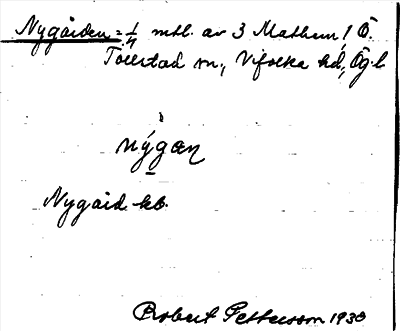 Nygården: 1/4 mtl. av 3 Mathem, 1 Ö.
Tollstad sn., Vifolka hd, Ög. l.
nýgæn
Nygård kb.
Robert Pettersson 1930